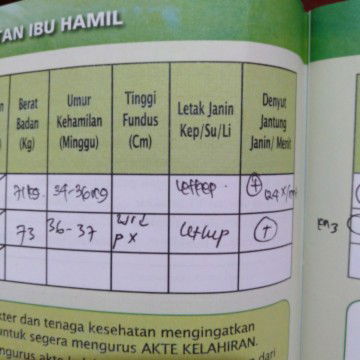 TAN IBU HAMIL
Berat Badan (Kg)
Umur Kehamilan (Minggu)
Tinggi Fundus (Cm)
Letak Janin Kep/Su/Li
Denyut Jantung Janin/ Menit
71kg 34-36mg letkep. (+)
73 36-37 letkep (+)
kter dan tenaga kesehatan mengingatkan
untuk segera mengurus AKTE KELAHIRAN.